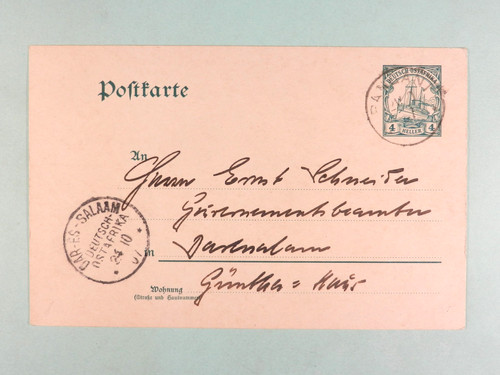 Postkarte
DEUTSCH-OSTAFRIKA
4 HELLER 4
An
Herrn Ernst Schneider
Gouvernementsbeamter
in Daressalam
Günther=Haus
Wohnung
(Straße und Hausnummer)
DAR-ES-SALAAM
DEUTSCH-
OSTAFRIKA
24 10